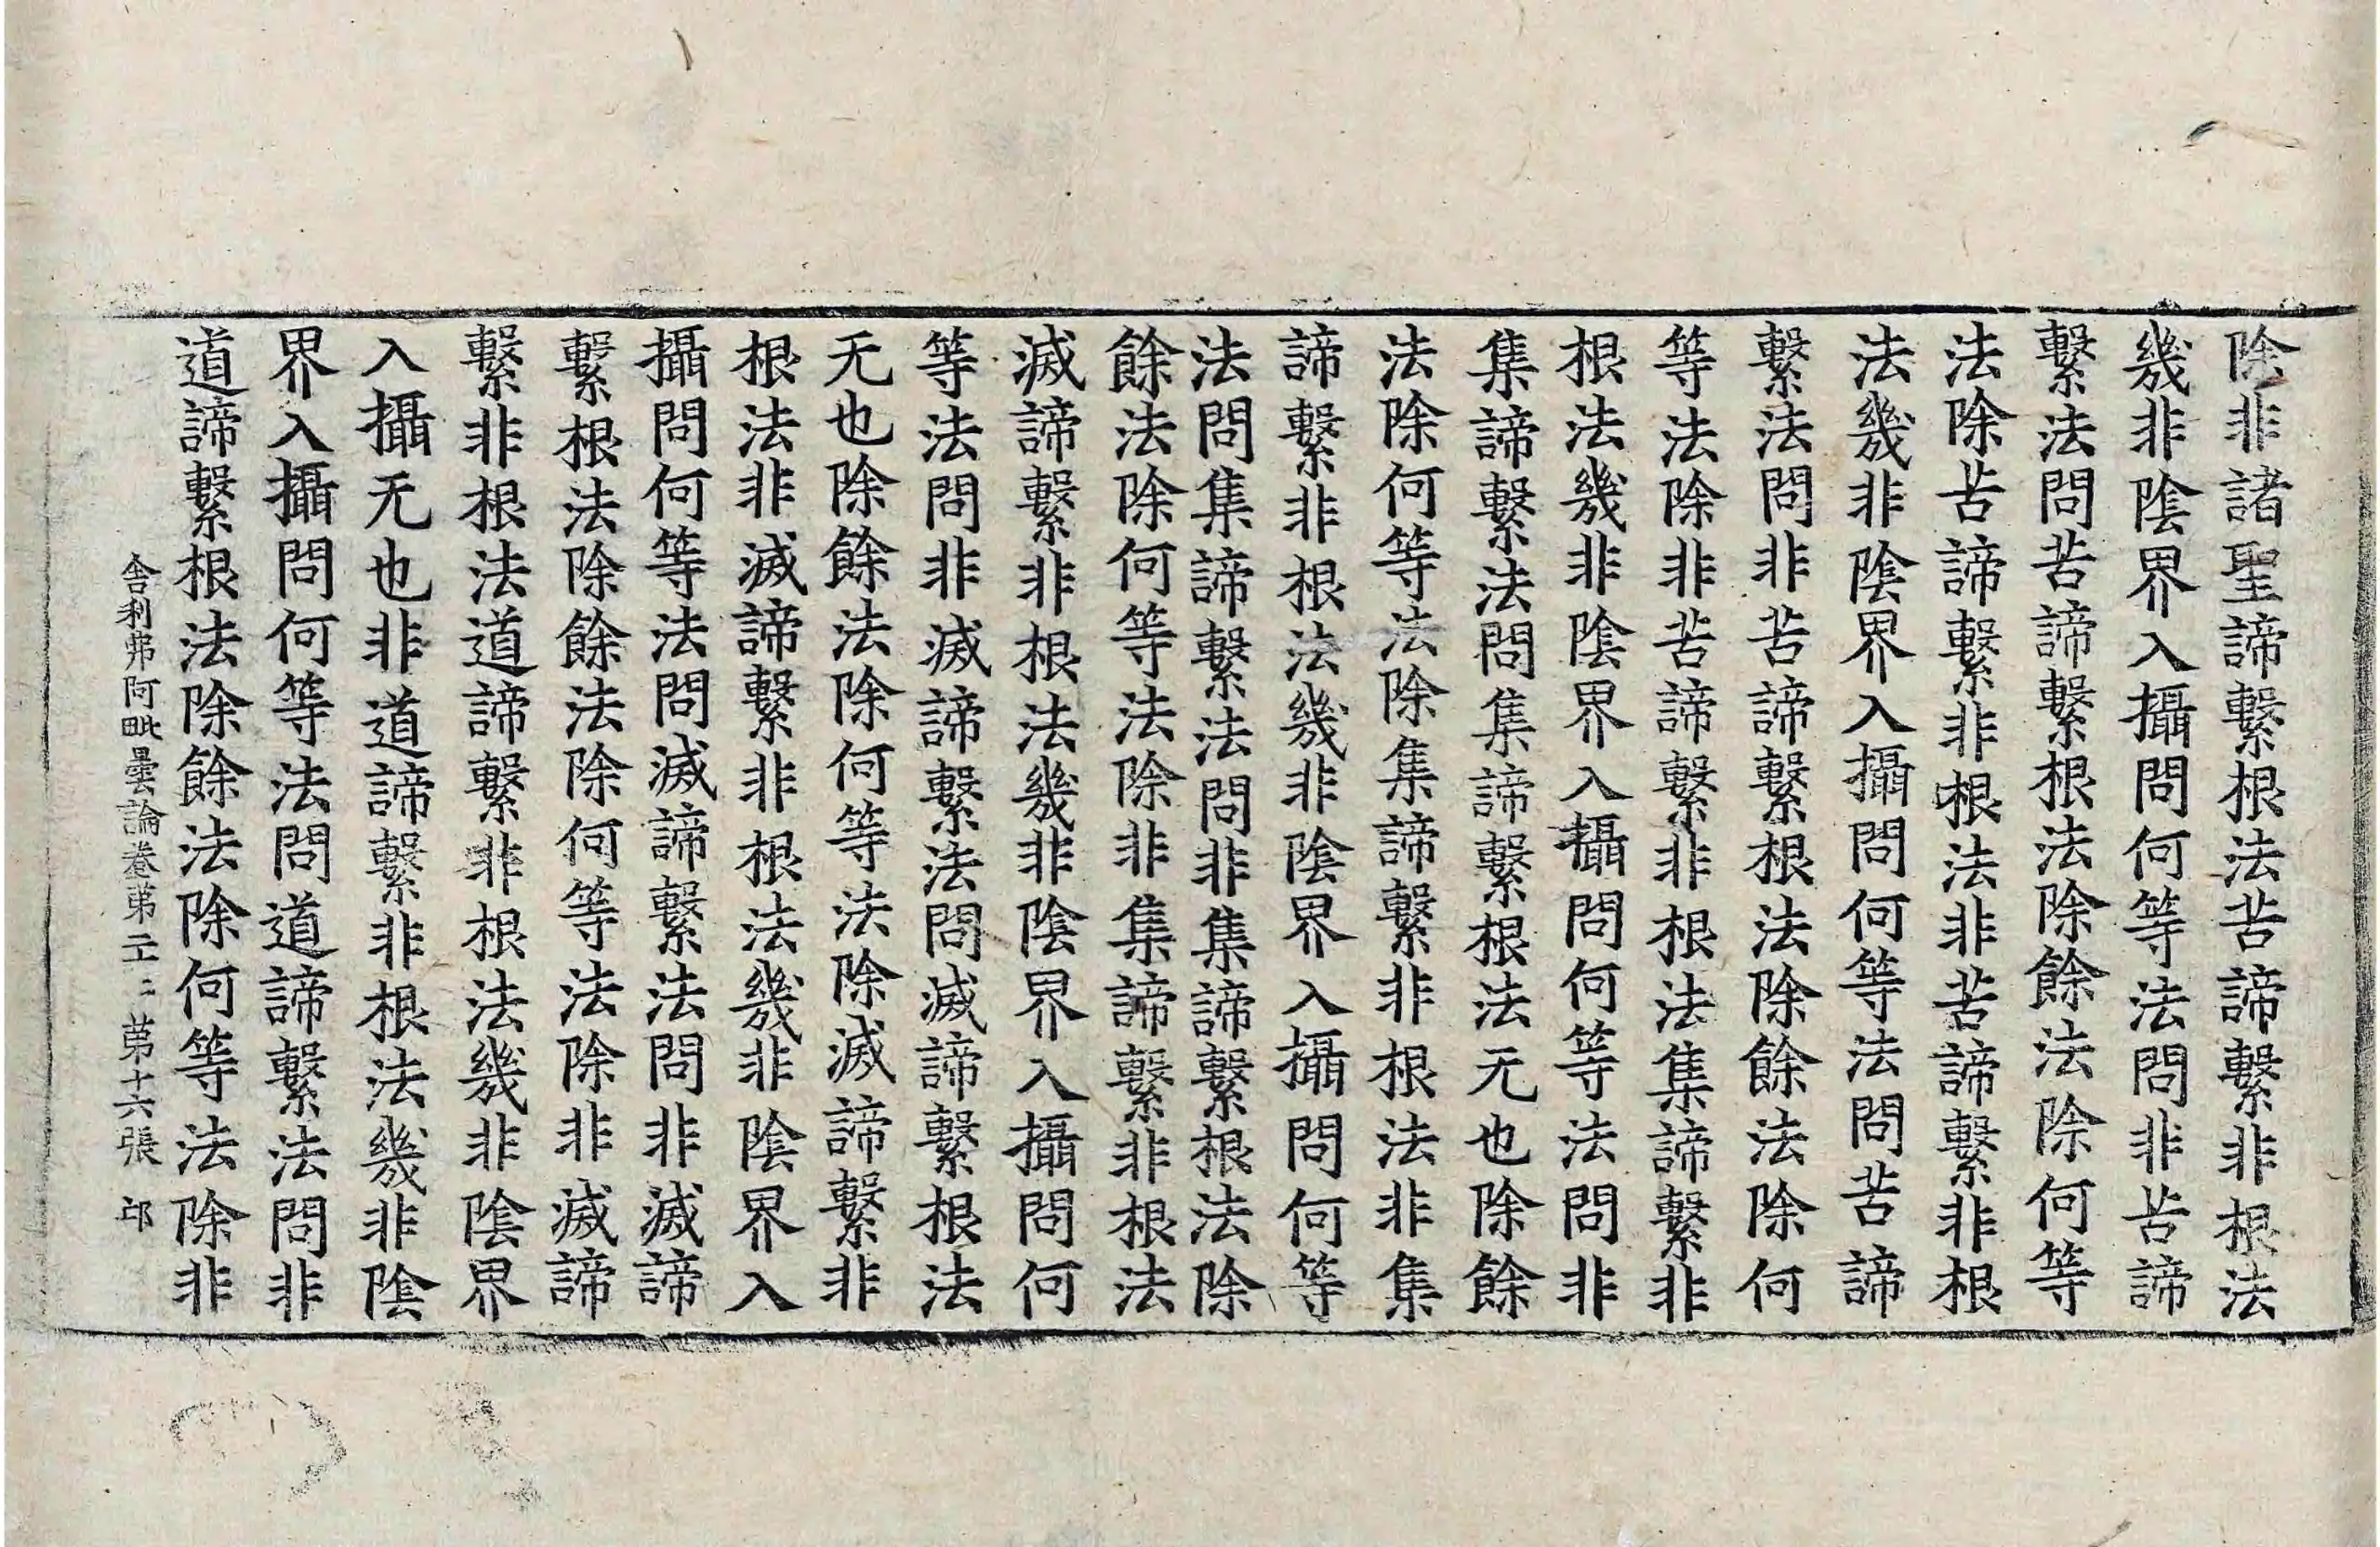 除非諸聖諦繫根法苦諦繫非根法
幾非陰界入攝問何等法問非苦諦
繫法問苦諦繫根法除餘法除何等
法除苦諦繫非根法非苦諦繫非根
法幾非陰界入攝問何等法問苦諦
繫法問非苦諦繫根法除餘法除何
等法除非苦諦繫非根法集諦繫非
根法幾非陰界入攝問何等法問非
集諦繫法問集諦繫根法无也除餘
法除何等法除集諦繫非根法非集
諦繫非根法幾非陰界入攝問何等
法問集諦繫法問非集諦繫根法除
餘法除何等法除非集諦繫非根法
滅諦繫非根法幾非陰界入攝問何
等法問非滅諦繫法問滅諦繫根法
无也除餘法除何等法除滅諦繫非
根法非滅諦繫非根法幾非陰界入
攝問何等法問滅諦繫法問非滅諦
繫根法除餘法除何等法除非滅諦
繫非根法道諦繫非根法幾非陰界
入攝无也非道諦繫非根法幾非陰
界入攝問何等法問道諦繫法問非
道諦繫根法除餘法除何等法除非
舍利弗阿毗曇論卷第二十二 第十六張 邙